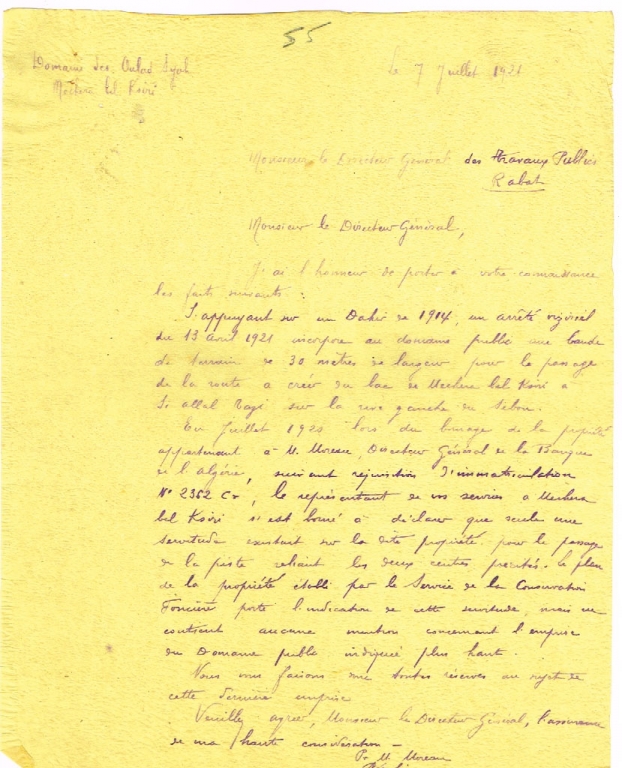 55
Domaine des Oulad Syab
Mechra bel Ksiri
Le 7 Juillet 1921
Monsieur le Directeur Général des Travaux Publics
Rabat
Monsieur le Directeur Général,
J'ai l'honneur de porter à votre connaissance
les faits suivants.
S'appuyant sur un Dahir de 1914, un arrêté viziriel
du 13 avril 1921 incorpore au domaine public une bande
de terrain de 30 mètres de largeur pour le passage
de la route à créer du bac de Mechra bel Ksiri à
Si allal Tazi sur la rive gauche du Sebou.
En Juillet 1920 lors du bornage de la propriété
appartenant à M. Moreau, Directeur Général de la Banque
de l'algérie, suivant réquisition d'immatriculation
N° 2362 Cr, le représentant de vos services à Mechra
bel Ksiri s'est borné à déclarer que seule une
servitude existait sur la dite propriété pour le passage
de la piste reliant les deux centres précités. le plan
de la propriété établi par le Service de la Conservation
Foncière porte l'indication de cette servitude, mais ne
contient aucune mention concernant l'emprise
du Domaine public indiquée plus haut.
Nous vous faisons toutes réserves au sujet de
cette dernière emprise
Veuillez agréer, Monsieur le Directeur Général, l'assurance
de ma haute considération –
Pr M. Moreau